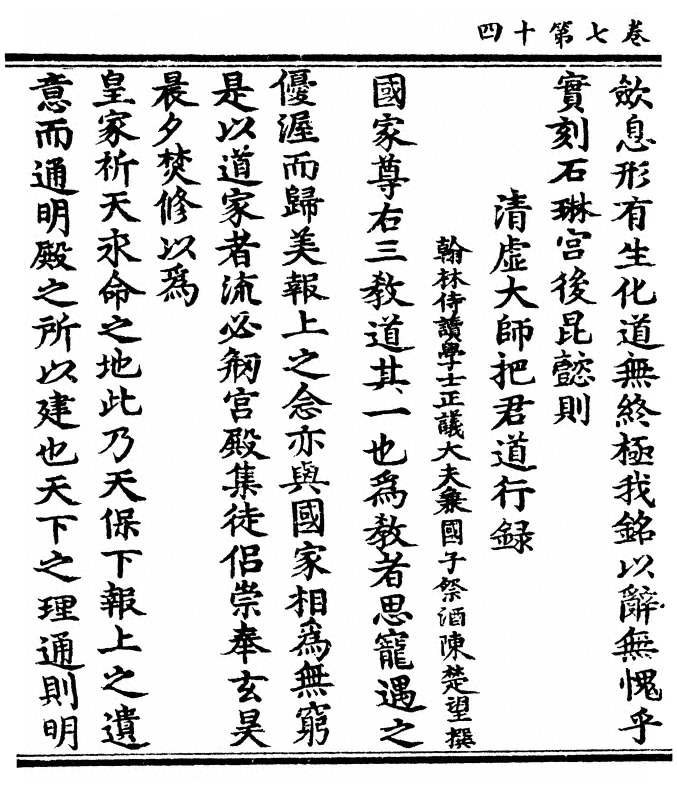 卷七第十四
歛息形有生化道無終極我銘以辭無愧乎
實刻石琳宫後昆懿則
清虛大師把君道行録
翰林侍讀學士正議大夫兼國子祭酒陳楚望撰
國家尊右三教道其一也爲教者思寵遇之
優渥而歸美報上之念亦與國家相爲無窮
是以道家者流必剏宫殿集徒侣崇奉玄昊
晨夕焚修以爲
皇家祈天永命之地此乃天保下報上之遺
意而通明殿之所以建也天下之理通則明